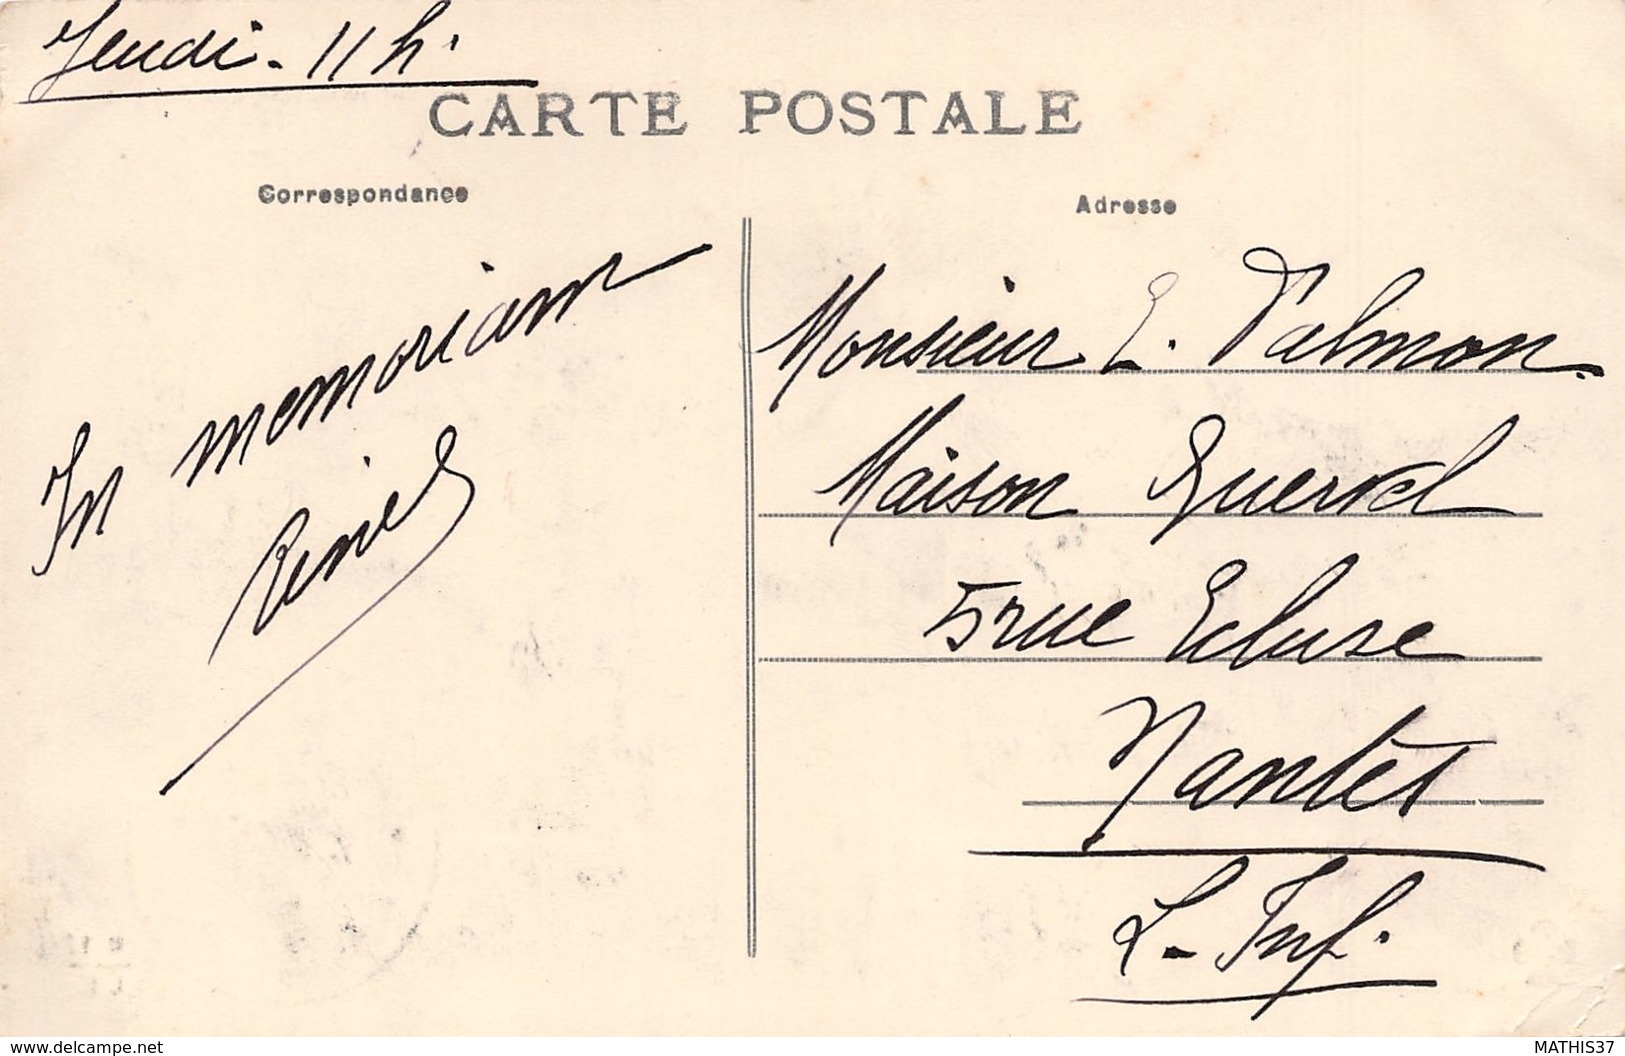 Jeudi - 11 h.
CARTE POSTALE
Correspondance
Adresse
In memoriam
Monsieur E. Valmon.
Maison
5 rue Ecluse
Nantes
L. Inf.
www.delcampe.net
MATHIS37